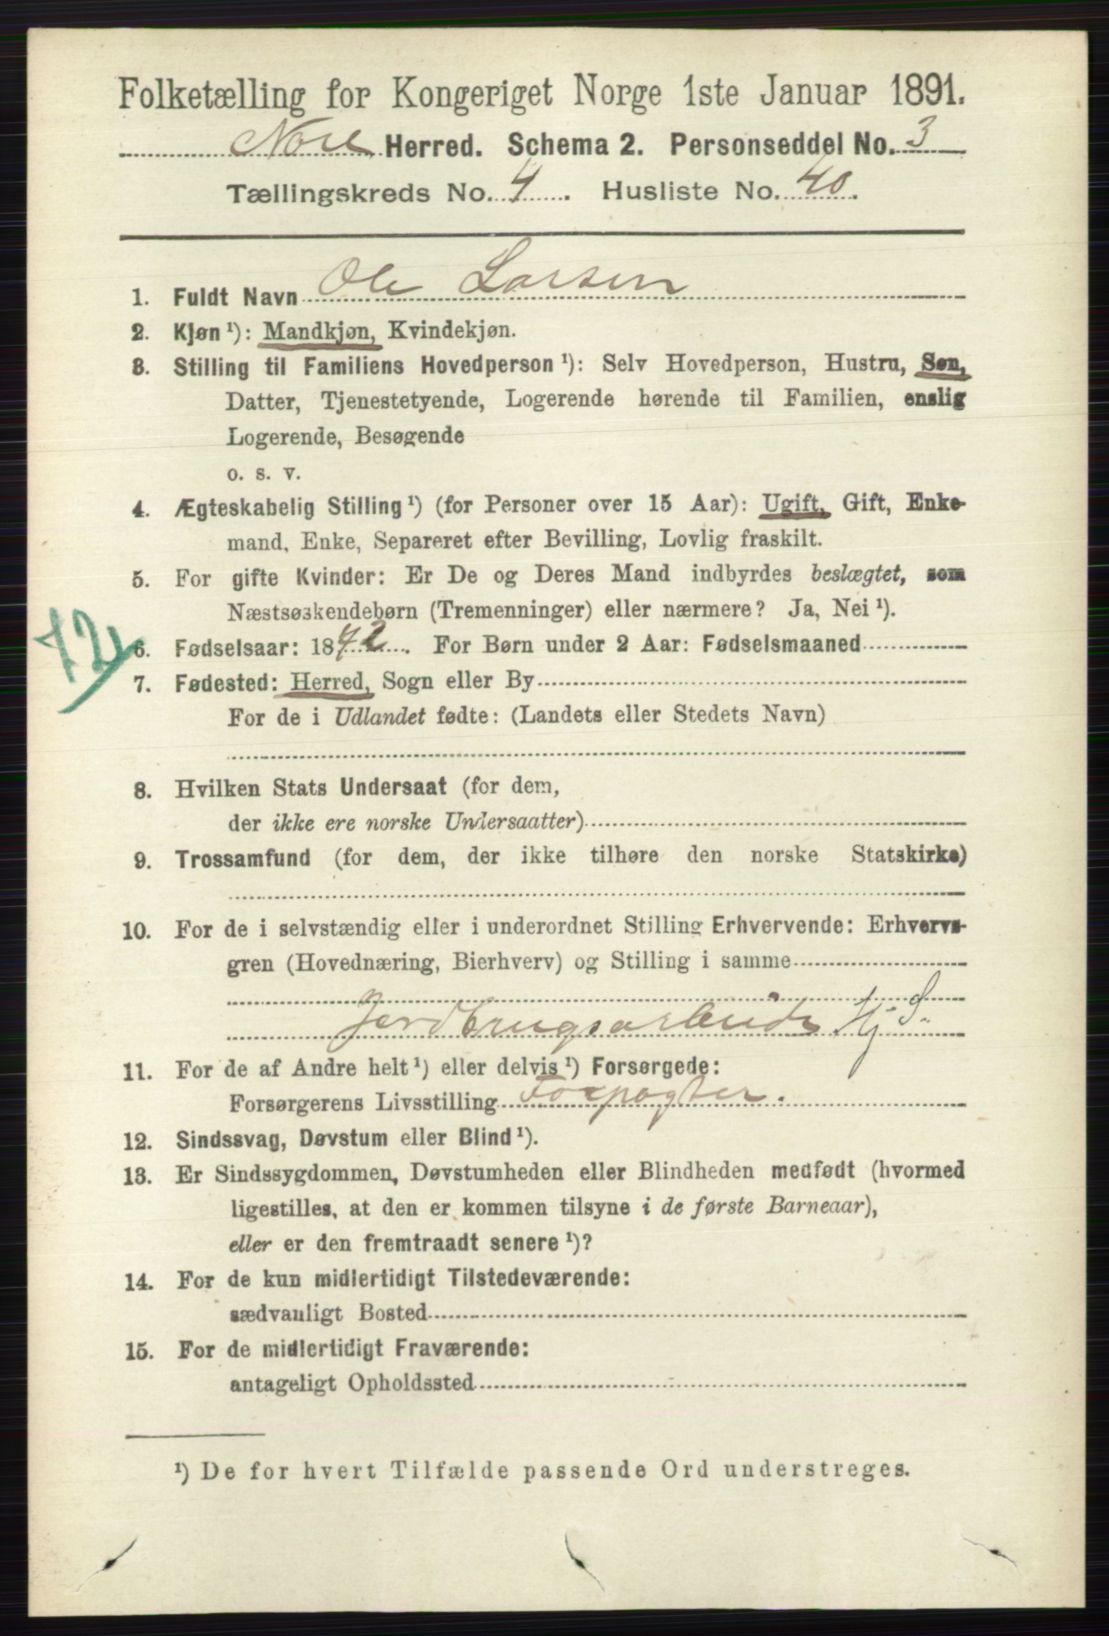 Folketælling for Kongeriget Norge 1ste Januar 1891.
Nore Herred. Schema 2. Personseddel No. 3
Tællingskreds No. 4. Husliste No. 40.
1. Fuldt Navn Ole Larsen
2. Kjøn ¹): Mandkjøn, Kvindekjøn.
3. Stilling til Familiens Hovedperson ¹): Selv Hovedperson, Hustru, Søn,
Datter, Tjenestetyende, Logerende hørende til Familien, enslig
Logerende, Besøgende
o. s. v.
4. Ægteskabelig Stilling ¹) (for Personer over 15 Aar): Ugift, Gift, Enke-
mand, Enke, Separeret efter Bevilling, Lovlig fraskilt.
5. For gifte Kvinder: Er De og Deres Mand indbyrdes beslægtet, som
Næstsøskendebørn (Tremenninger) eller nærmere? Ja, Nei ¹).
72
6. Fødselsaar: 1872. For Børn under 2 Aar: Fødselsmaaned
7. Fødested: Herred, Sogn eller By
For de i Udlandet fødte: (Landets eller Stedets Navn)
8. Hvilken Stats Undersaat (for dem,
der ikke ere norske Undersaatter)
9. Trossamfund (for dem, der ikke tilhøre den norske Statskirke)
10. For de i selvstændig eller i underordnet Stilling Erhvervende: Erhvervs-
gren (Hovednæring, Bierhverv) og Stilling i samme
Jordbrugsarbeide Hj S.
11. For de af Andre helt ¹) eller delvis ¹) Forsørgede:
Forsørgerens Livsstilling Forpagter.
12. Sindssvag, Døvstum eller Blind ¹).
13. Er Sindssygdommen, Døvstumheden eller Blindheden medfødt (hvormed
ligestilles, at den er kommen tilsyne i de første Barneaar),
eller er den fremtraadt senere ¹)?
14. For de kun midlertidigt Tilstedeværende:
sædvanligt Bosted
15. For de midlertidigt Fraværende:
antageligt Opholdssted
¹) De for hvert Tilfælde passende Ord understreges.